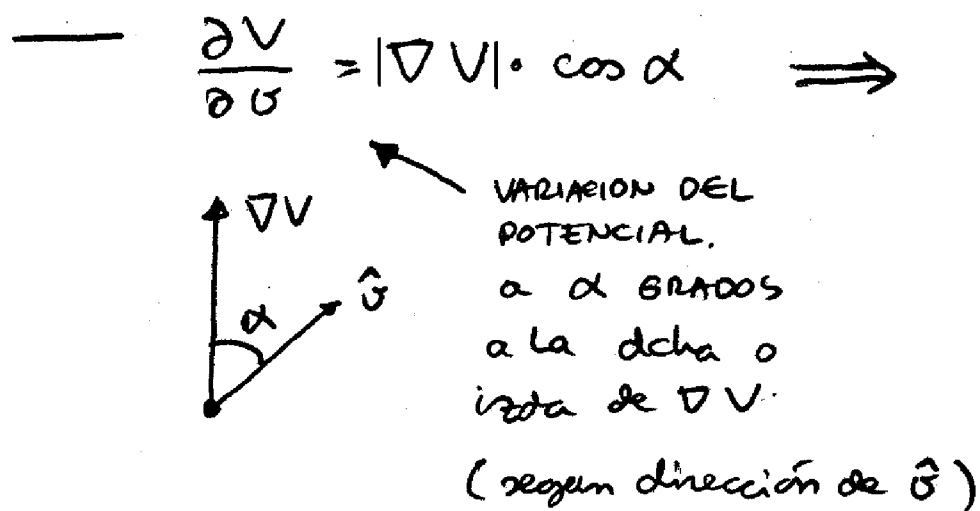 — ∂V/∂v = |∇V| · cos α ⟹
VARIACION DEL
POTENCIAL.
a α GRADOS
a la dcha o
izda de ∇V.
(segun dirección de v̂)
∇V
v̂
α